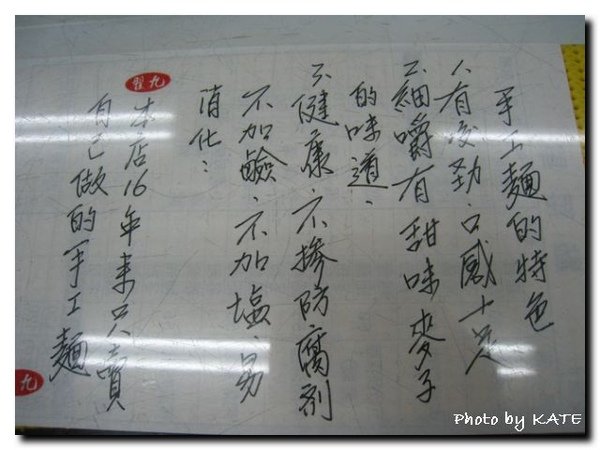 手工麵的特色
1.有咬勁、口感十足
2.細嚼有甜味麥子
的味道、
3.健康、不摻防腐剂
不加鹼、不加塩、易
消化：
本店16年来只賣
自己做的手工麵
九
九
Photo by KATE